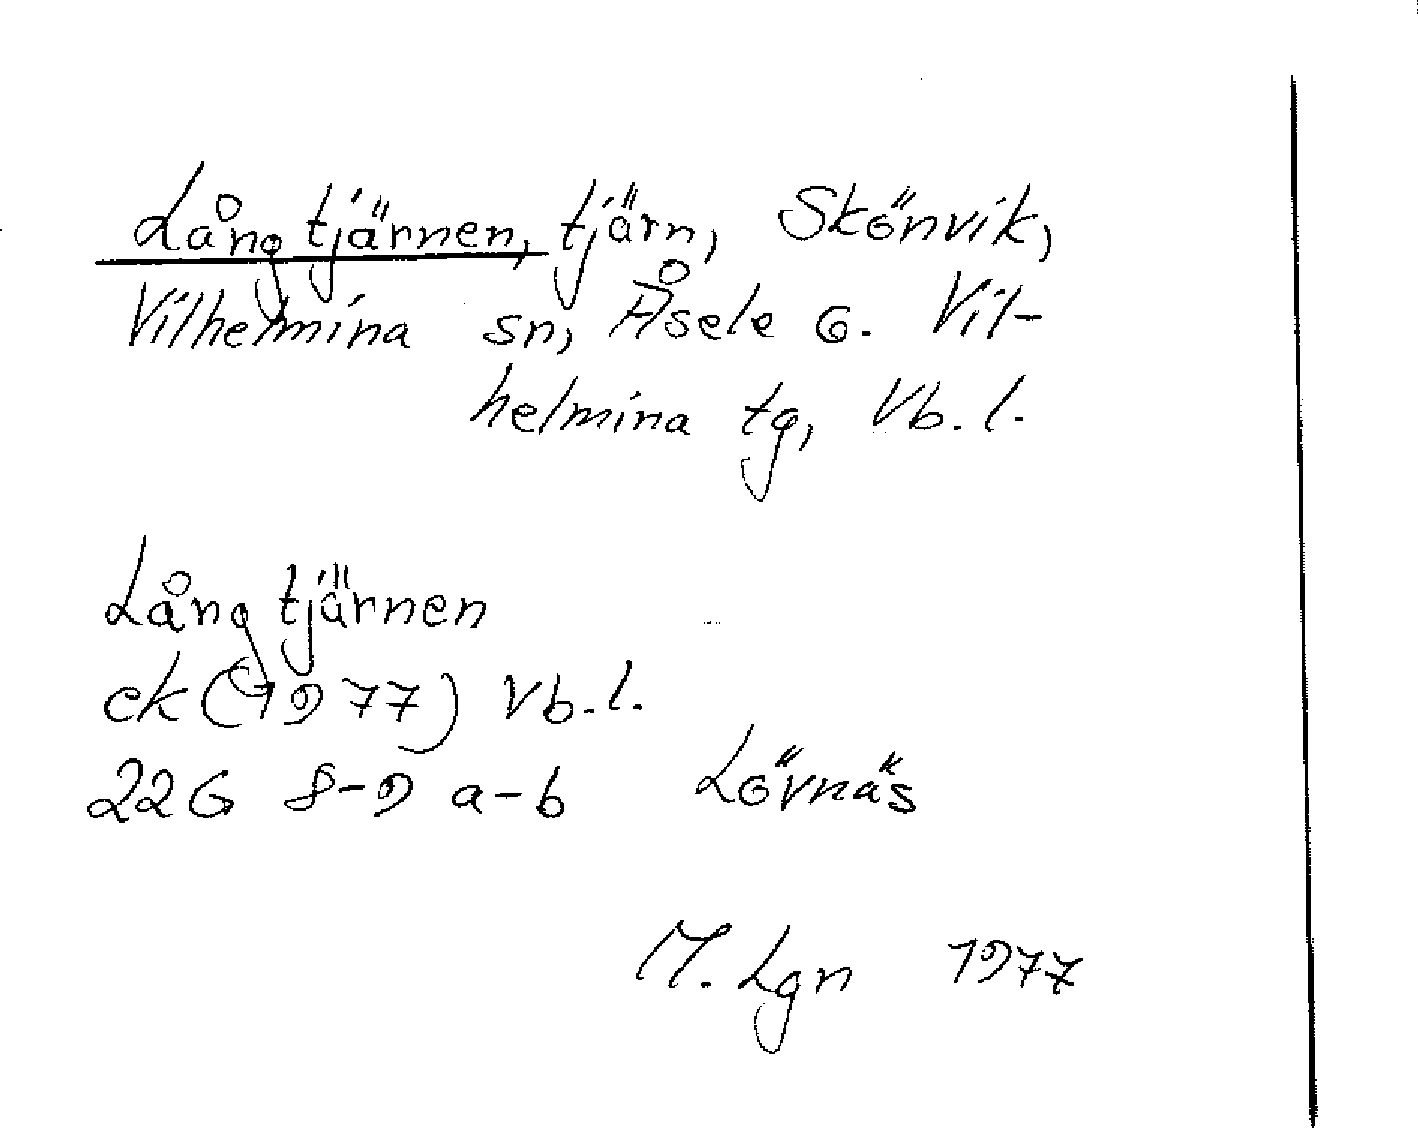 Långtjärnen, tjärn, Skönvik,
Vilhelmina sn, Åsele G. Vil-
helmina tg, Vb. l.
Långtjärnen
ek (1977) Vb. l.
22G 8-9 a-b Lövnäs
M. Lgn 1977